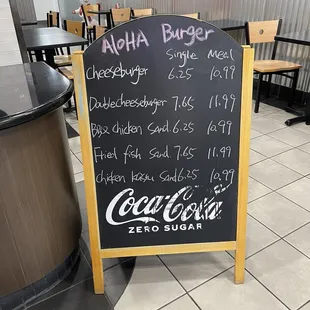 AloHA Burger
Single Meal
Cheeseburger 6.25 10.99
Doublecheeseburger 7.65 11.99
BBQ chicken Sand. 6.25 10.99
Fried fish sand. 7.65 11.99
chicken katsu Sand 6.25 10.99
Coca-Cola
ZERO SUGAR